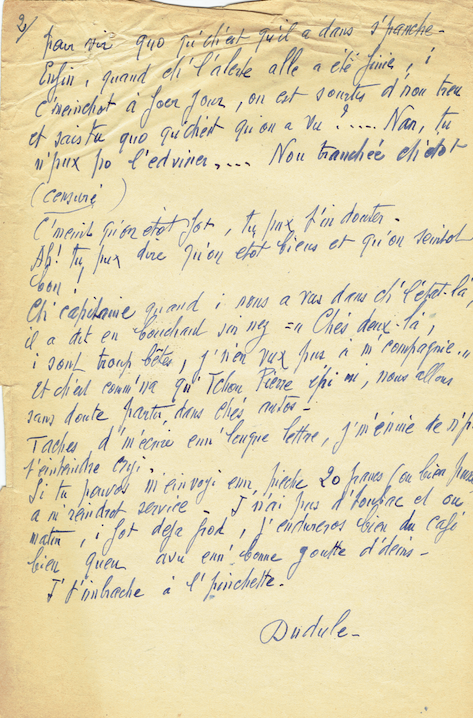 2/
pour vir quo qu'ch'est qu'il a dans s'panche -
Enfin, quand ch' l'alerte alle a été finie, i
c'meinchot à foer jour, on est sourtis d'nou treu
et sais tu quo qu'ch'est qu'on a vu ? .... Nan, tu
n'pux po l'edviner .... Nou tranchée ch'étot
(censuré)
C'meint qu'on étot fot, tu pux t'in douter -
Ah! tu pux dire qu'on étot biens et qu'on seintot
bon !
Ch'capitaine quand i nous a vus dans ch'l'état-là
il a dit en bouchant sin nez = « Chés deux-là,
i sont troup bêtes, j'n'en vux pus à m'compagnie. »
Et ch'est comm'na qu'Tchou Pierre épi mi, nous allons
sans doute partir dans chés autos -
Taches d'm'écrire enn' longue lettre, j'm'énnuie de n'p
t'entendre
Si tu pouvos m'envoyi enn' pièche 20 francs (ou bien puss
a m'reindrot service - J'n'ai pus d'toubac et ou
matin, i fot déjà frod, j'endureros bien du café
bien queu avu enn' bonne goutte d'deins -
J't'imbrache à l'pinchette.
Dudule -